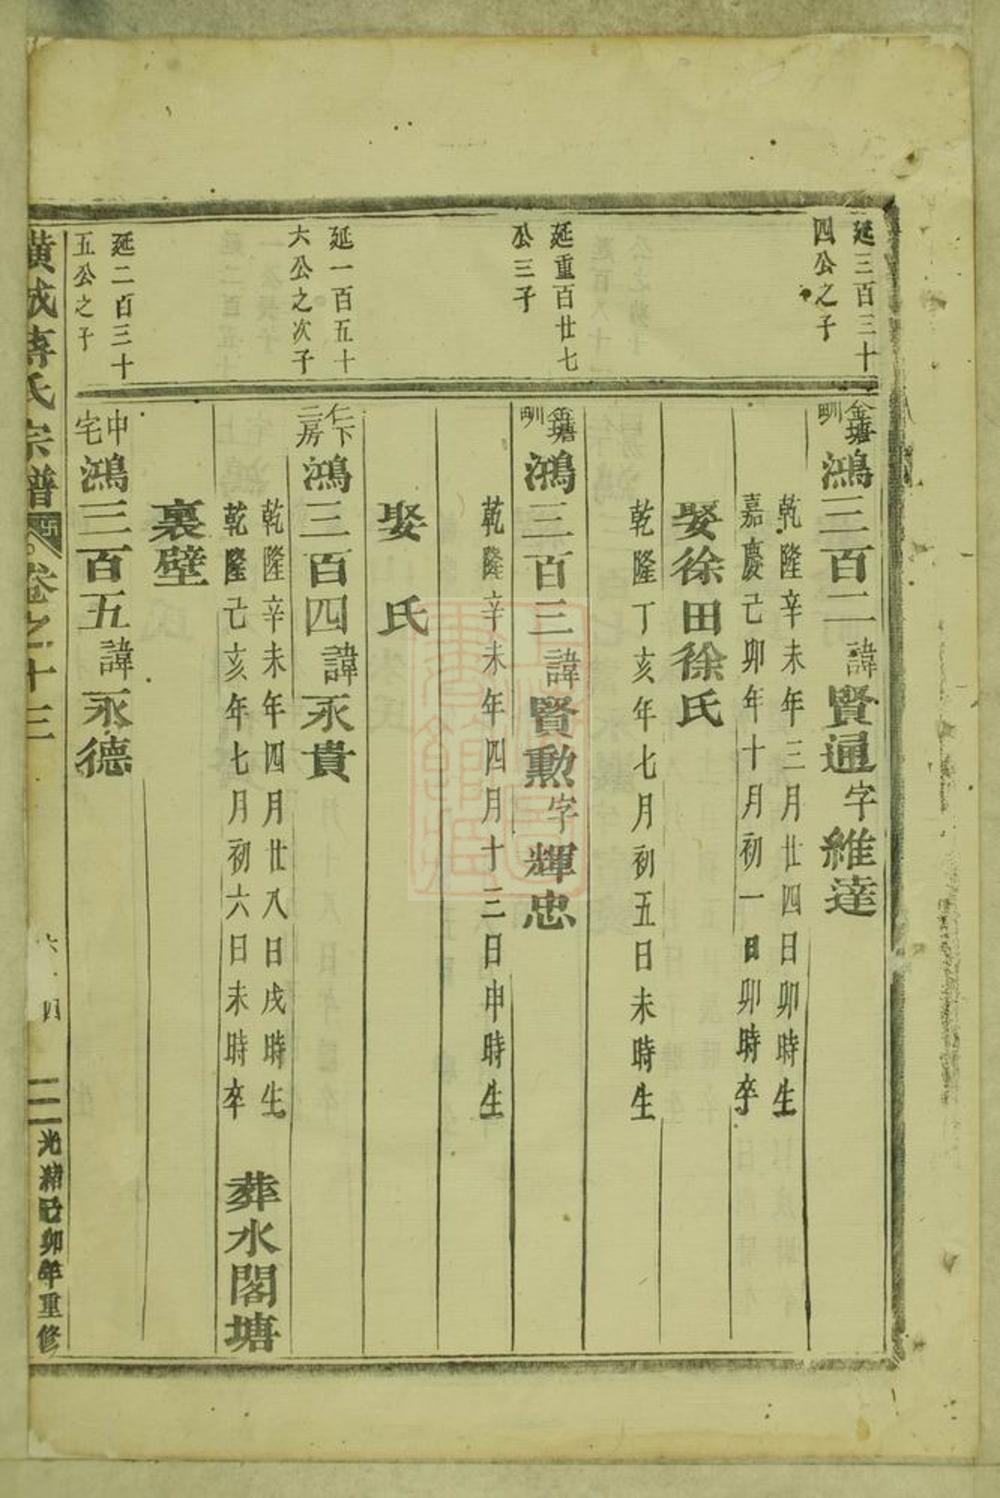 延三百三十
四公之子
金塘
鴻三百二諱賢通字維達
乾隆辛未年三月廿四日卯時生
嘉慶己卯年十月初一日卯時卒
娶徐田徐氏
乾隆丁亥年七月初五日未時生
延重百廿七
公三子
金塘
鴻三百三諱賢勲字輝忠
乾隆辛未年四月十三日申時生
娶 氏
延一百五十
六公之次子
仁下
二房
鴻三百四諱永貴
乾隆辛未年四月廿八日戌時生
乾隆己亥年七月初六日未時卒 葬水閣塘
裏壁
延二百三十
五公之子
中
宅
鴻三百五諱永德
橫城蔣氏宗譜 卷之十三 光緒己卯年重修